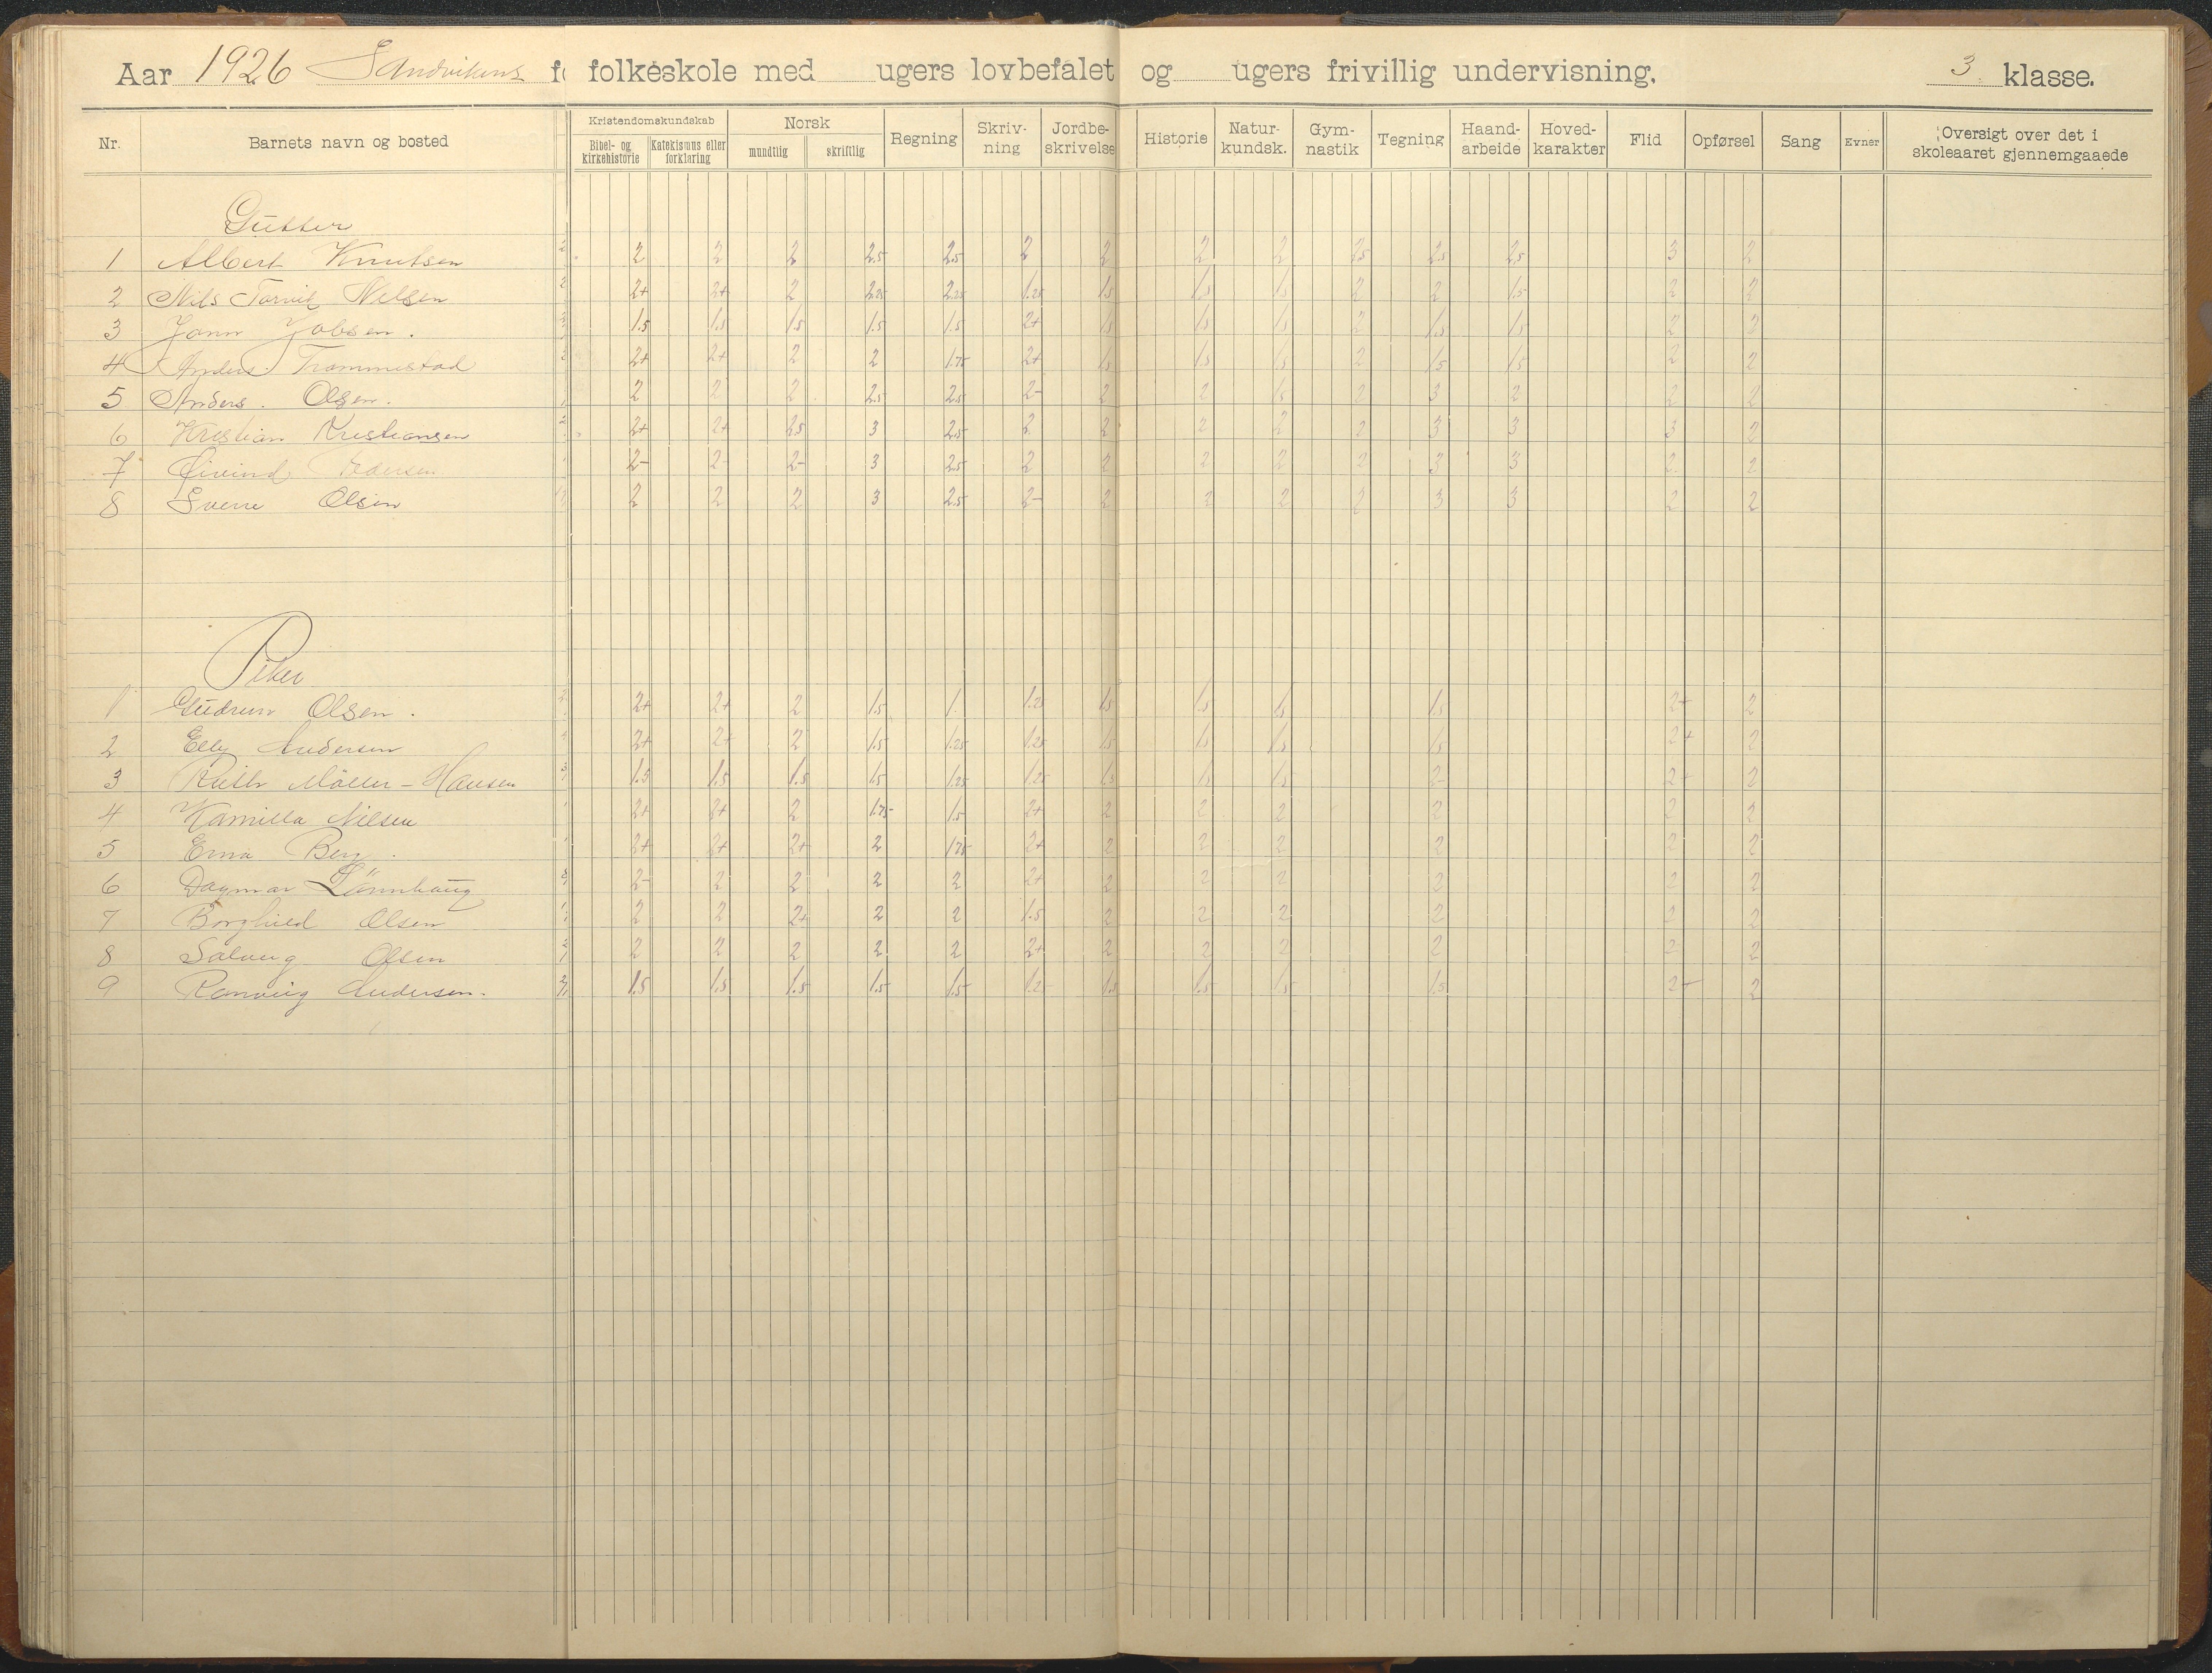 Aar 1926 Sandvikens folkeskole med ugers lovbefalet og ugers frivillig undervisning. 3. klasse.
Nr. Barnets navn og bosted Kristendomskundskab Bibel- og kirkehistorie Katekismus eller forklaring Norsk mundtlig skriftlig Regning Skriv-ning Jordbe-skrivelse Historie Natur-kundsk. Gym-nastik Tegning Haand-arbeide Hoved-karakter Flid Opførsel Sang Evner Oversigt over det i skoleaaret gjennemgaaede
Gutter
1 Albert Knutsen 2 2 2 2.5 2.5 2 2 2 2 2.5 2.5 2.5 3 2
2 Nils Tarvik Nilsen 2+ 2+ 2 2.25 2.25 1.25 1.5 1.5 1.5 2 2 1.5 2 2
3 Jonn Jobsen. 1.5 1.5 1.5 1.5 1.5 2+ 1.5 1.5 1.5 2 1.5 1.5 2 2
4 Anders Trommestad 2+ 2+ 2 2 1.75 2+ 1.5 1.5 1.5 2 1.5 1.5 2 2
5 Anders. Olsen. 2 2 2 2.5 2.5 2- 2 2 1.5 2 3 2 2 2
6 Kristian Kristiansen 2+ 2+ 2.5 3 2.5 2 2 2 2 2 3 3 3 2
7 Øivind Pedersen 2- 2- 2- 3 2.5 2 2 2 2 2 3 3 2 2
8 Sverre Olsen 2 2 2 3 2.5 2- 2 2 2 2 3 3 2 2
Piker
1 Gudrun Olsen. 2+ 2+ 2 1.5 1. 1.25 1.5 1.5 1.5 1.5 2+ 2
2 Elly Andersen 2+ 2+ 2 1.5 1.25 1.25 1.5 1.5 1.5 1.5 2+ 2
3 Ruth Møller-Hansen 1.5 1.5 1.5 1.5 1.25 1.25 1.5 1.5 1.5 2- 2+ 2
4 Kamilla Nilsen 2+ 2+ 2 1.75 1.5 2+ 2 2 2 2 2 2
5 Erna Berg. 2+ 2+ 2+ 2 1.75 2+ 2 2 2 2 2 2
6 Dagmar Lönnhaug 2- 2 2 2 2 2+ 2 2 2 2 2 2
7 Borghild Olsen 2 2 2+ 2 2 1.5 2 2 2 2 2 2
8 Solveig Olsen 2 2 2 2 2 2+ 2 2 2 2 2 2
9 Ranveig Andersen. 1.5 1.5 1.5 1.5 1.5 1.2 1.5 1.5 1.5 1.5 2+ 2